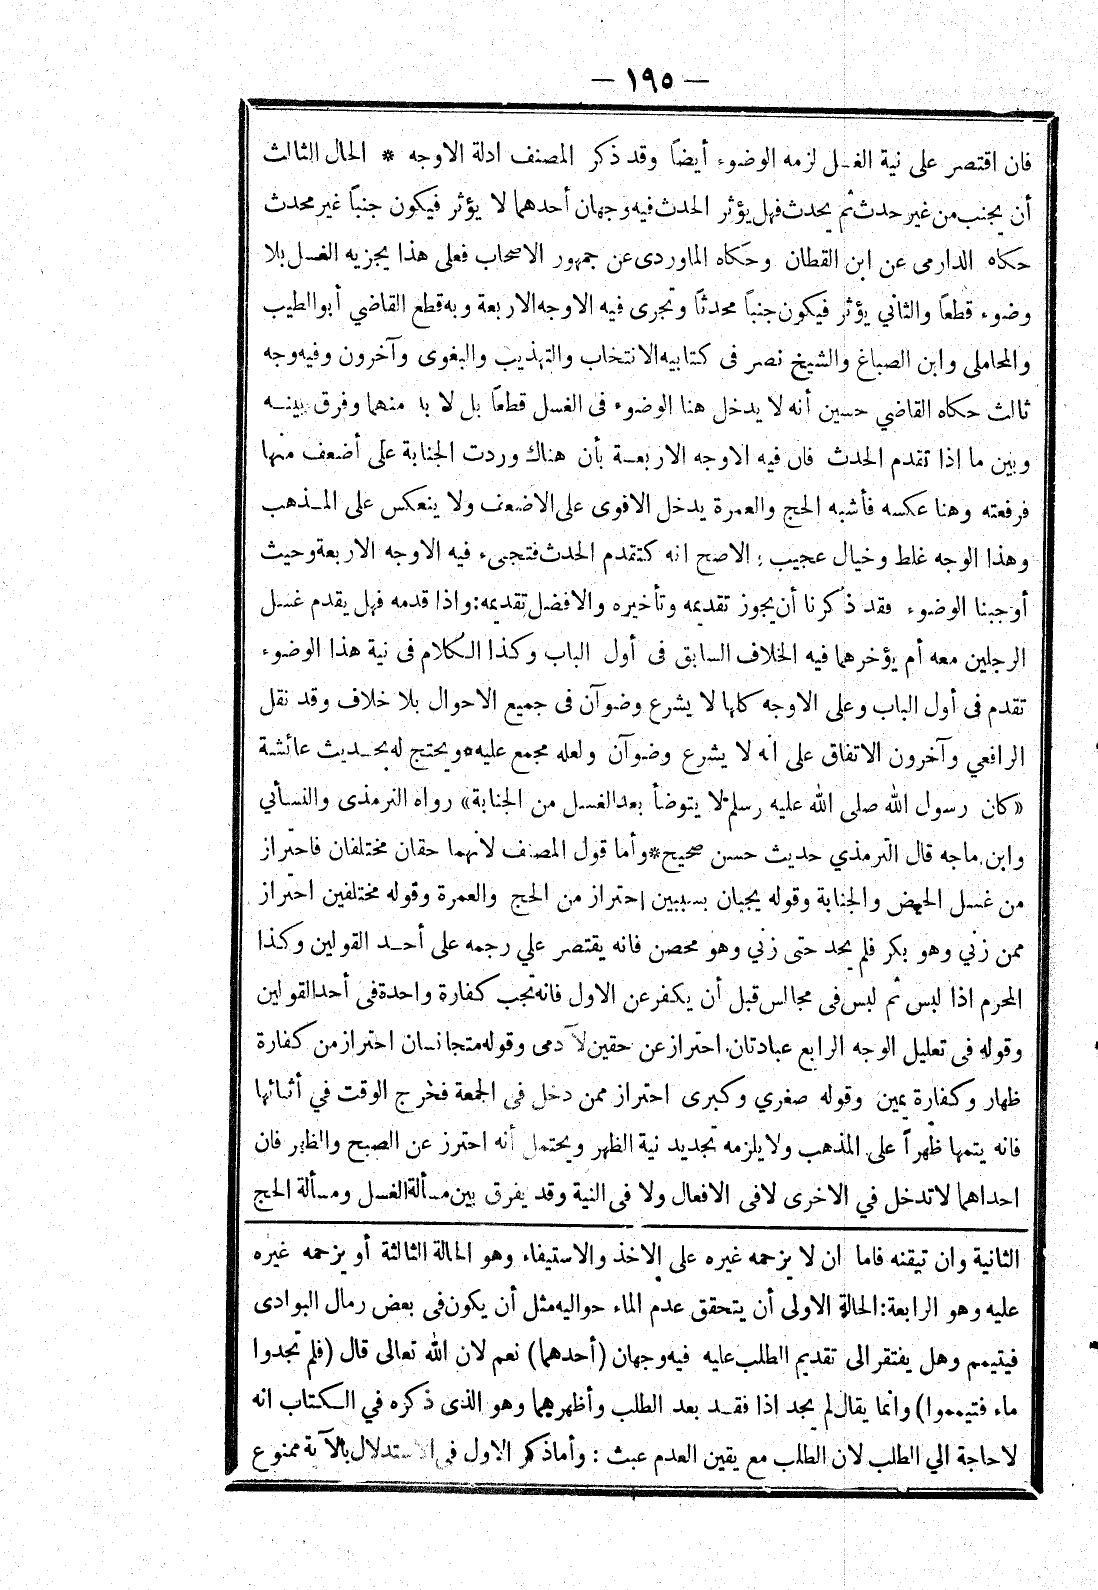 — ١٩٥ —
فان اقتصر على نية الغسل لزمه الوضوء أيضاً وقد ذكر المصنف ادلة الاوجه * الحال الثالث
أن يجنب من غير حدث ثم يحدث فهل يؤثر الحدث فيه وجهان أحدهما لا يؤثر فيكون جنباً غير محدث
حكاه الدارمى عن ابن القطان وحكاه الماوردى عن جمهور الاصحاب فعلى هذا يجزيه الغسل بلا
وضوء قطعاً والثاني يؤثر فيكون جنباً محدثاً وتجرى فيه الاوجه الاربعة وبه قطع القاضي أبو الطيب
والمحاملى وابن الصباغ والشيخ نصر فى كتابيه الانتخاب والتهذيب والبغوى وآخرون وفيه وجه
ثالث حكاه القاضي حسين أنه لا يدخل هنا الوضوء فى الغسل قطعاً بل لا بد منهما وفرق بينه
وبين ما اذا تقدم الحدث فان فيه الاوجه الاربعة بأن هناك وردت الجنابة على أضعف منها
فرفعته وهنا عكسه فأشبه الحج والعمرة يدخل الاقوى على الاضعف ولا ينعكس على المذهب
وهذا الوجه غلط وخيال عجيب : الاصح انه كتقدم الحدث فتجيء فيه الاوجه الاربعة وحيث
أوجبنا الوضوء فقد ذكرنا أن يجوز تقديمه وتأخيره والافضل تقديمه: واذا قدمه فهل يقدم غسل
الرجلين معه أم يؤخرهما فيه الخلاف السابق فى أول الباب وكذا الكلام فى نية هذا الوضوء
تقدم فى أول الباب وعلى الاوجه كلها لا يشرع وضوآن فى جميع الاحوال بلا خلاف وقد نقل
الرافعي وآخرون الاتفاق على انه لا يشرع وضوآن ولعله مجمع عليه* ويحتج له بحديث عائشة
«كان رسول الله صلى الله عليه وسلم لا يتوضأ بعد الغسل من الجنابة» رواه الترمذى والنسأئي
وابن ماجه قال الترمذي حديث حسن صحيح* وأما قول المصنف لانهما حقان مختلفان فاحتراز
من غسل الحيض والجنابة وقوله يجبان بسببين احتراز من الحج والعمرة وقوله مختلفين احتراز
ممن زنى وهو بكر فلم يحد حتى زنى وهو محصن فانه يقتصر علي رجمه على أحد القولين وكذا
المحرم اذا لبس ثم لبس فى مجالس قبل أن يكفر عن الاول فانه تجب كفارة واحدة فى أحد القولين
وقوله فى تعليل الوجه الرابع عبادتان احتراز عن حقين لآدمى وقوله متجانسان احتراز من كفارة
ظهار وكفارة يمين وقوله صغري وكبرى احتراز ممن دخل فى الجمعة فخرج الوقت في أثنائها
فانه يتمها ظهراً على المذهب ولا يلزمه تجديد نية الظهر ويحتمل أنه احترز عن الصبح والظهر فان
احداهما لا تدخل في الاخرى لا فى الافعال ولا فى النية وقد يفرق بين مسألة الغسل ومسألة الحج
الثانية وان تيقنه فاما ان لا يزحمه غيره على الاخذ والاستيفاء وهو الحالة الثالثة أو يزحمه غيره
عليه وهو الرابعة: الحالة الاولى أن يتحقق عدم الماء حواليه مثل أن يكون فى بعض رمال البوادى
فيتيمم وهل يفتقر الى تقديم الطلب عليه فيه وجهان (أحدهما) نعم لان الله تعالى قال (فلم تجدوا
ماء فتيمموا) وانما يقال لم يجد اذا فقد بعد الطلب وأظهرهما وهو الذى ذكره في الكتاب انه
لا حاجة الي الطلب لان الطلب مع يقين العدم عبث : وأما ذكر الاول فى الاستدلال بالآية ممنوع